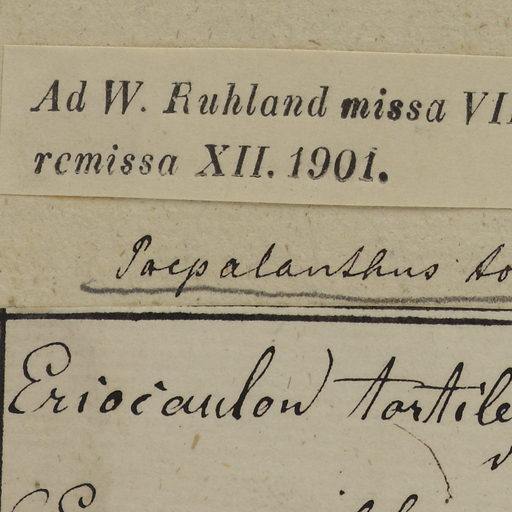 Ad W. Ruhland missa VII
remissa XII. 1901.
Paepalanthus to
Eriocaulon tortile